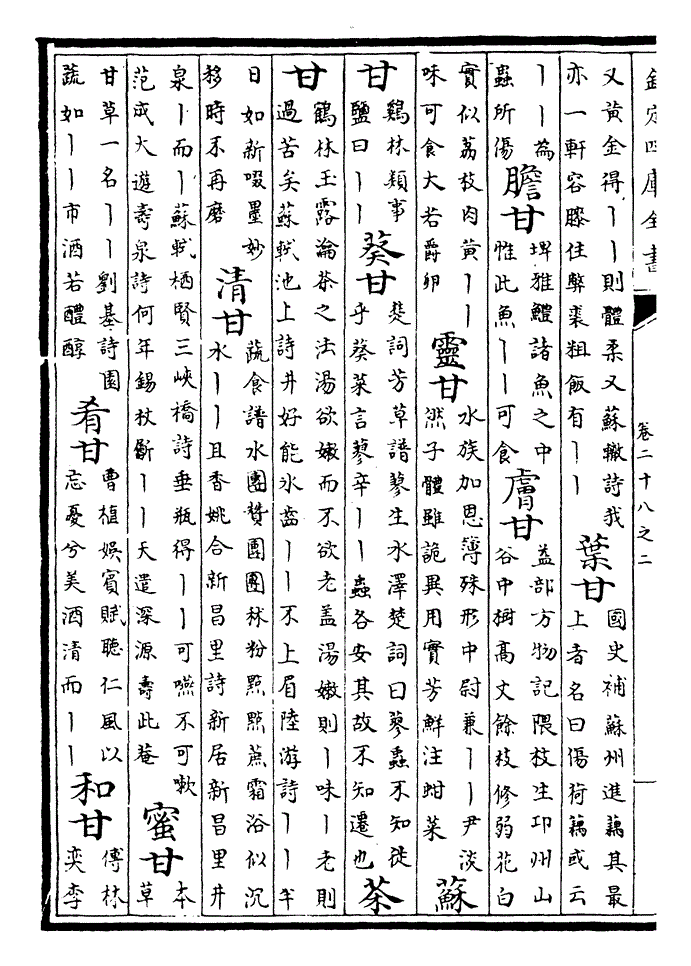 欽定四庫全書
卷二十八之二
又黃金得丨丨則體柔又蘇轍詩我
亦一軒容膝住弊裘粗飯有丨丨
葉甘
國史補蘇州進藕其最
上者名曰傷荷藕或云
丨丨為
蟲所傷
膽甘
埤雅鱧諸魚之中
惟此魚丨丨可食
膚甘
益部方物記隈枝生邛州山
谷中樹髙丈餘枝修弱花白
實似荔枝肉黄丨丨
味可食大若爵卵
靈甘
水族加恩簿殊形中尉兼丨丨尹淡
然子體雖詭異用實芳鮮注蚶菜
蘇
甘
鷄林類事
鹽曰丨丨
葵甘
楚詞芳草譜蓼生水澤楚詞曰蓼蟲不知徙
乎葵菜言蓼辛丨丨蟲各安其故不知遷也
茶
甘
鶴林玉露瀹茶之法湯欲嫩而不欲老盖湯嫩則丨味丨老則
過苦矣蘇軾池上詩井好能冰齒丨丨不上眉陸游詩丨丨半
日如新啜墨妙
移時不再磨
清甘
蔬食譜水團贊團團秫粉點點蔗霜浴似沉
水丨丨且香姚合新昌里詩新居新昌里井
泉丨而丨蘇軾栖賢三峽橋詩垂瓶得丨丨可嚥不可漱
范成大遊壽泉詩何年錫杖斸丨丨天遣深源壽此菴
蜜甘
本
草
甘草一名丨丨劉基詩園
蔬如丨丨市酒若醴醇
肴甘
曹植娛賓賦聽仁風以
忘憂兮美酒清而丨丨
和甘
傅林
奕季